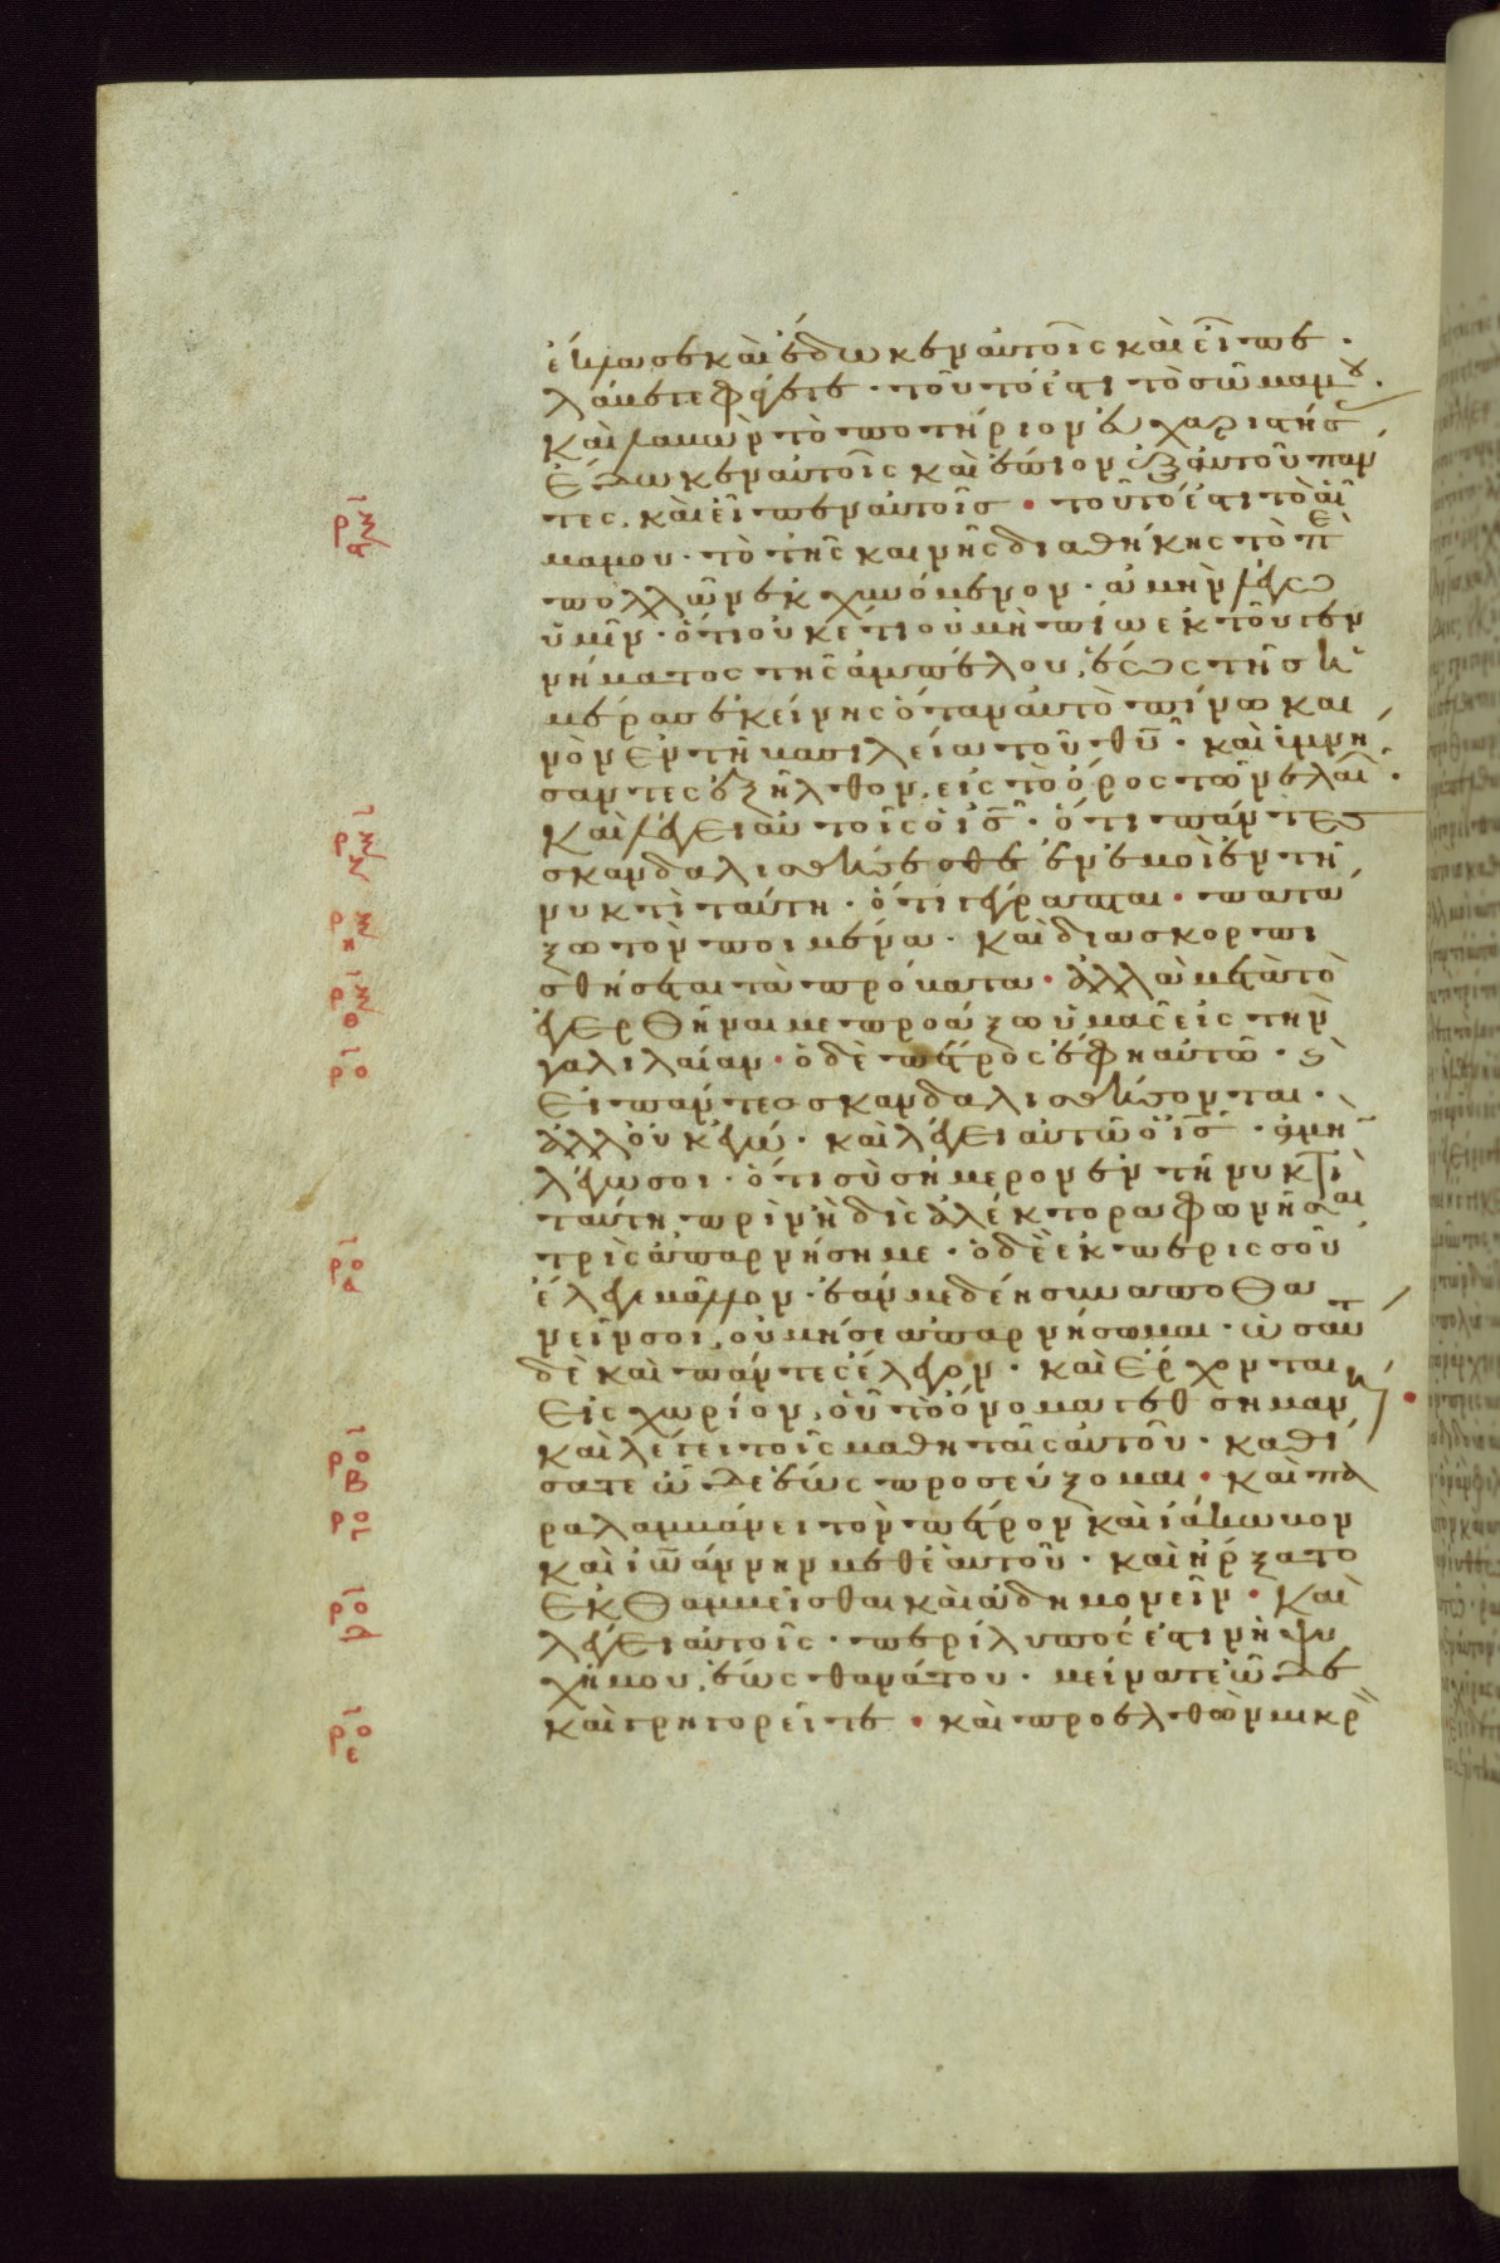 ἔκλασε καὶ ἔδωκεν αὐτοῖς καὶ εἶπε ·
λάβετε φάγετε · τοῦτό ἐστι τὸ σῶμα μου ·
καὶ λαβὼν τὸ ποτήριον εὐχαριστήσ
ἔδωκεν αὐτοῖς καὶ ἔπιον ἐξ αὐτοῦ παν
ρξϛ τες, καὶ εἶπεν αὐτοῖς · τοῦτό ἐστι τὸ αἷ
μα μου · τὸ τῆς καινῆς διαθήκης τὸ πε
πολλῶν ἐκχυνόμενον · ἀμὴν λέγω
ὑμῖν · ὅτι οὐκέτι οὐ μὴ πίω ἐκ τοῦ γεν
νήματος τῆς ἀμπέλου, ἕως τῆς ἡ
μέρας ἐκείνης ὅταν αὐτὸ πίνω και
νὸν ἐν τῆ βασιλεία τοῦ θῦ · καὶ ὑμνη
σαντες ἐξῆλθον, εἰς τὸ ὄρος τῶν ἐλαι ·
ρξζ καὶ λέγει αὐτοῖς ὁ ις · ὅτι πάντες
σκανδαλισθήσεσθε ἐν ἐμοὶ ἐν τῆ
ρξη νυκτὶ ταύτη · ὅτι γέγραπται · πατά
ξω τὸν ποιμένα · καὶ διασκορπι
ρξθ σθήσεται τὰ πρόβατα · ἀλλὰ μετὰ τὸ
ἐγερθῆναι με προάξω ὑμᾶς εἰς τὴν
ρο γαλιλαίαν · ὁ δὲ πέτρος ἔφη αὐτῶ · ϗ
εἰ πάντες σκανδαλισθήσονται ·
ἀλλ οὐκ ἐγώ · καὶ λέγει αὐτῶ ὁ ις · ἀμη
λέγω σοι · ὅτι σὺ σήμερον ἐν τῆ νυκτὶ
ταύτη πρὶν ἢ δὶς ἀλέκτορα φωνῆσαι
ροα τρὶς ἀπαρνήση με · ὁ δὲ ἐκ περισσοῦ
ἔλεγε μᾶλλον · ἐάν με δέη συναποθα
νεῖν σοι, οὐ μή σε ἀπαρνήσωμαι · ὡσαύτ
δὲ καὶ πάντες ἔλεγον · καὶ ἔρχονται
εἰς χωρίον, οὗ τὸ ὄνομα γεθσημανη ·
ροβ καὶ λέγει τοῖς μαθηταῖς αὐτοῦ · καθί
σατε ὧδε ἕως προσεύξομαι · καὶ πα
ρογ ραλαμβάνει τὸν πέτρον καὶ ἰάκωβον
καὶ ἰωάννην μεθ ἑαυτοῦ · καὶ ἤρξατο
ροδ ἐκθαμβεῖσθαι καὶ ἀδημονεῖν · καὶ
λέγει αὐτοῖς · περίλυπός ἐστιν ἡ ψυ
χή μου, ἕως θανάτου · μείνατε ὧδε
ροε καὶ γρηγορεῖτε · καὶ προελθὼν μικρ